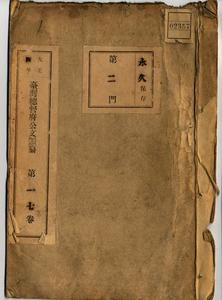 02357
永久保存
第二門
大正四年
臺灣總督府公文類纂
第一七卷